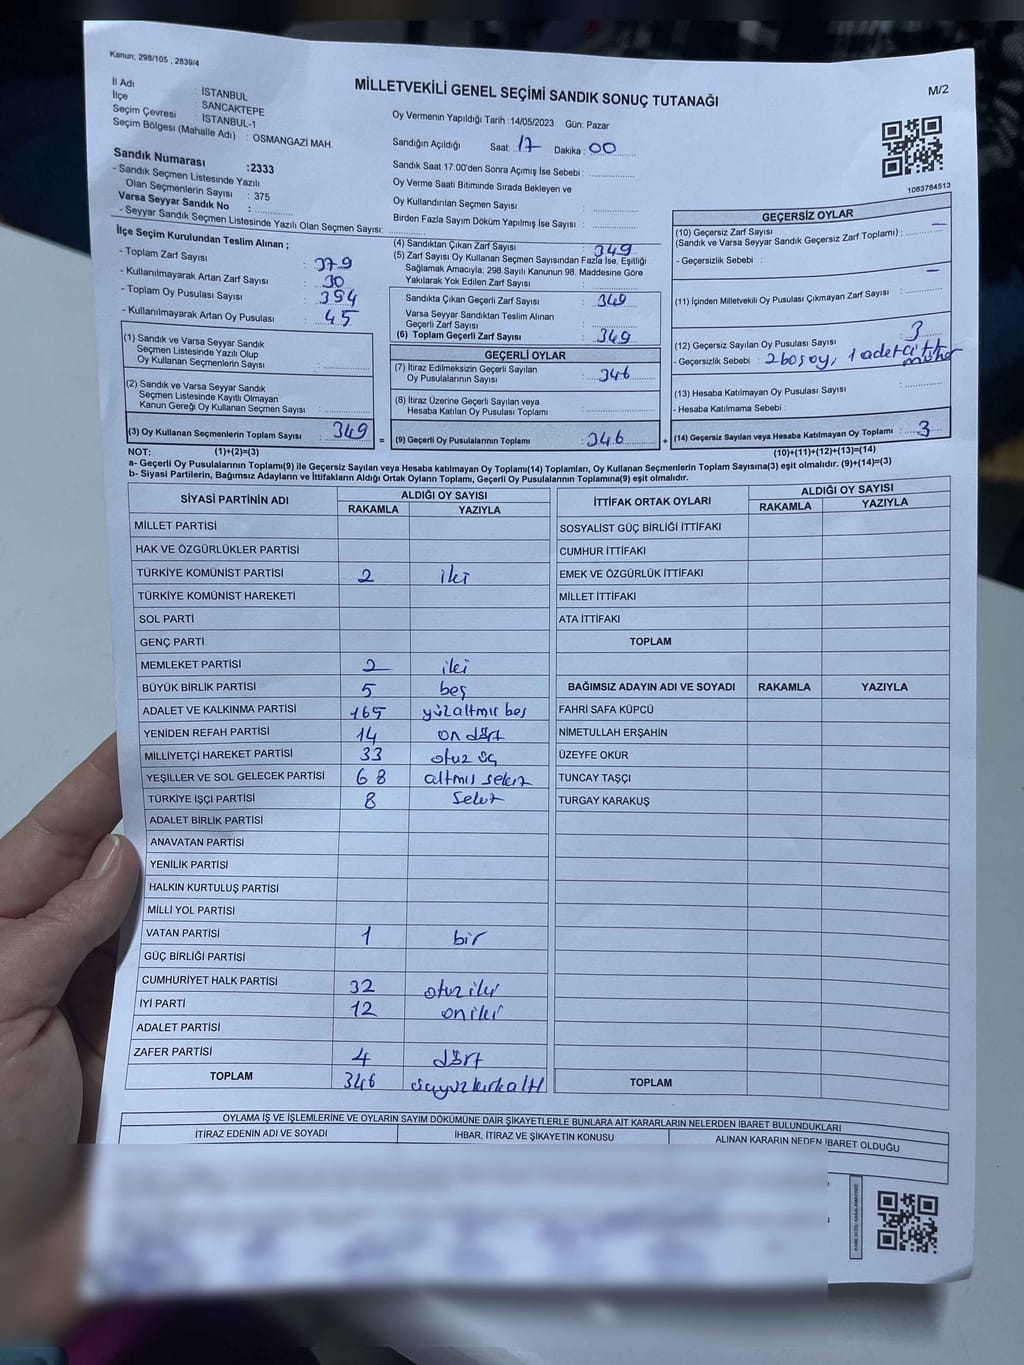 Kanun; 298/105 , 2839/4
MİLLETVEKİLİ GENEL SEÇİMİ SANDIK SONUÇ TUTANAĞI
M/2
İl Adı : İSTANBUL
İlçe : SANCAKTEPE
Seçim Çevresi : İSTANBUL-1
Seçim Bölgesi (Mahalle Adı) : OSMANGAZİ MAH.
Sandık Numarası :2333
- Sandık Seçmen Listesinde Yazılı
Olan Seçmenlerin Sayısı : 375
Varsa Seyyar Sandık No :
- Seyyar Sandık Seçmen Listesinde Yazılı Olan Seçmen Sayısı:
Oy Vermenin Yapıldığı Tarih :14/05/2023 Gün: Pazar
Sandığın Açıldığı Saat: 17 Dakika : 00
Sandık Saat 17:00'den Sonra Açımış İse Sebebi :
Oy Verme Saati Bitiminde Sırada Bekleyen ve
Oy Kullandırılan Seçmen Sayısı :
Birden Fazla Sayım Döküm Yapılmış İse Sayısı :
1083784513
İlçe Seçim Kurulundan Teslim Alınan ;
- Toplam Zarf Sayısı : 379
- Kullanılmayarak Artan Zarf Sayısı : 30
- Toplam Oy Pusulası Sayısı : 394
- Kullanılmayarak Artan Oy Pusulası : 45
(1) Sandık ve Varsa Seyyar Sandık
Seçmen Listesinde Yazılı Olup
Oy Kullanan Seçmenlerin Sayısı :
(2) Sandık ve Varsa Seyyar Sandık
Seçmen Listesinde Kayıtlı Olmayan
Kanun Gereği Oy Kullanan Seçmen Sayısı :
(3) Oy Kullanan Seçmenlerin Toplam Sayısı : 349 =
(4) Sandıktan Çıkan Zarf Sayısı : 349
(5) Zarf Sayısı Oy Kullanan Seçmen Sayısından Fazla İse, Eşitliği
Sağlamak Amacıyla; 298 Sayılı Kanunun 98. Maddesine Göre
Yakılarak Yok Edilen Zarf Sayısı :
Sandıkta Çıkan Geçerli Zarf Sayısı : 349
Varsa Seyyar Sandıktan Teslim Alınan
Geçerli Zarf Sayısı :
(6) Toplam Geçerli Zarf Sayısı : 349
GEÇERLİ OYLAR
(7) İtiraz Edilmeksizin Geçerli Sayılan
Oy Pusulalarının Sayısı : 346
(8) İtiraz Üzerine Geçerli Sayılan veya
Hesaba Katılan Oy Pusulası Toplamı :
(9) Geçerli Oy Pusulalarının Toplamı : 346 +
GEÇERSİZ OYLAR
(10) Geçersiz Zarf Sayısı
(Sandık ve Varsa Seyyar Sandık Geçersiz Zarf Toplamı) : –
- Geçersizlik Sebebi :
(11) İçinden Milletvekili Oy Pusulası Çıkmayan Zarf Sayısı : –
(12) Geçersiz Sayılan Oy Pusulası Sayısı : 3
- Geçersizlik Sebebi : 2 boş oy, 1 adet çift mühür
(13) Hesaba Katılmayan Oy Pusulası Sayısı :
- Hesaba Katılmama Sebebi :
(14) Geçersiz Sayılan veya Hesaba Katılmayan Oy Toplamı : 3
NOT: (1)+(2)=(3)
(10)+(11)+(12)+(13)=(14)
a- Geçerli Oy Pusulalarının Toplamı(9) ile Geçersiz Sayılan veya Hesaba katılmayan Oy Toplamı(14) Toplamları, Oy Kullanan Seçmenlerin Toplam Sayısına(3) eşit olmalıdır. (9)+(14)=(3)
b- Siyasi Partilerin, Bağımsız Adayların ve İttifakların Aldığı Ortak Oyların Toplamı, Geçerli Oy Pusulalarının Toplamına(9) eşit olmalıdır.
SİYASİ PARTİNİN ADI ALDIĞI OY SAYISI
RAKAMLA YAZIYLA
MİLLET PARTİSİ
HAK VE ÖZGÜRLÜKLER PARTİSİ
TÜRKİYE KOMÜNİST PARTİSİ 2 iki
TÜRKİYE KOMÜNİST HAREKETİ
SOL PARTİ
GENÇ PARTİ
MEMLEKET PARTİSİ 2 iki
BÜYÜK BİRLİK PARTİSİ 5 beş
ADALET VE KALKINMA PARTİSİ 165 yüzaltmış beş
YENİDEN REFAH PARTİSİ 14 on dört
MİLLİYETÇİ HAREKET PARTİSİ 33 otuz üç
YEŞİLLER VE SOL GELECEK PARTİSİ 68 altmış sekiz
TÜRKİYE İŞÇİ PARTİSİ 8 sekiz
ADALET BİRLİK PARTİSİ
ANAVATAN PARTİSİ
YENİLİK PARTİSİ
HALKIN KURTULUŞ PARTİSİ
MİLLİ YOL PARTİSİ
VATAN PARTİSİ 1 bir
GÜÇ BİRLİĞİ PARTİSİ
CUMHURİYET HALK PARTİSİ 32 otuz iki
İYİ PARTİ 12 on iki
ADALET PARTİSİ
ZAFER PARTİSİ 4 dört
TOPLAM 346 üçyüz kırk altı
İTTİFAK ORTAK OYLARI ALDIĞI OY SAYISI
RAKAMLA YAZIYLA
SOSYALİST GÜÇ BİRLİĞİ İTTİFAKI
CUMHUR İTTİFAKI
EMEK VE ÖZGÜRLÜK İTTİFAKI
MİLLET İTTİFAKI
ATA İTTİFAKI
TOPLAM
BAĞIMSIZ ADAYIN ADI VE SOYADI RAKAMLA YAZIYLA
FAHRİ SAFA KÜPCÜ
NİMETULLAH ERŞAHİN
ÜZEYFE OKUR
TUNCAY TAŞÇI
TURGAY KARAKUŞ
TOPLAM
OYLAMA İŞ VE İŞLEMLERİNE VE OYLARIN SAYIM DÖKÜMÜNE DAİR ŞİKAYETLERLE BUNLARA AİT KARARLARIN NELERDEN İBARET BULUNDUKLARI
İTİRAZ EDENİN ADI VE SOYADI İHBAR, İTİRAZ VE ŞİKAYETİN KONUSU ALINAN KARARIN NEDEN İBARET OLDUĞU